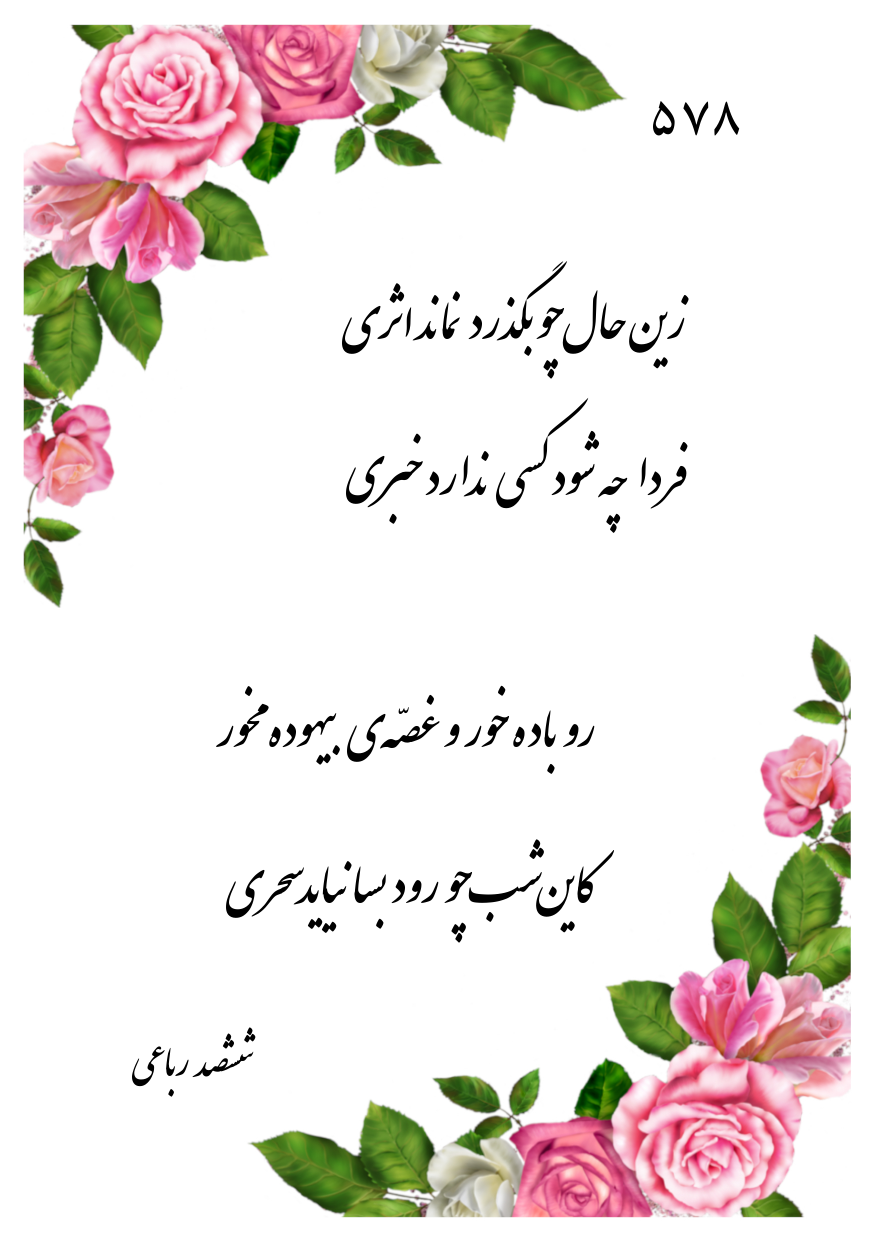 ۵۷۸
زین حال چو بگذرد نماند اثری
فردا چه شود کسی ندارد خبری
رو باده خور و غصّه‌ی بیهوده مخور
کاین شب چو رود بسا نیاید سحری
ششصد رباعی